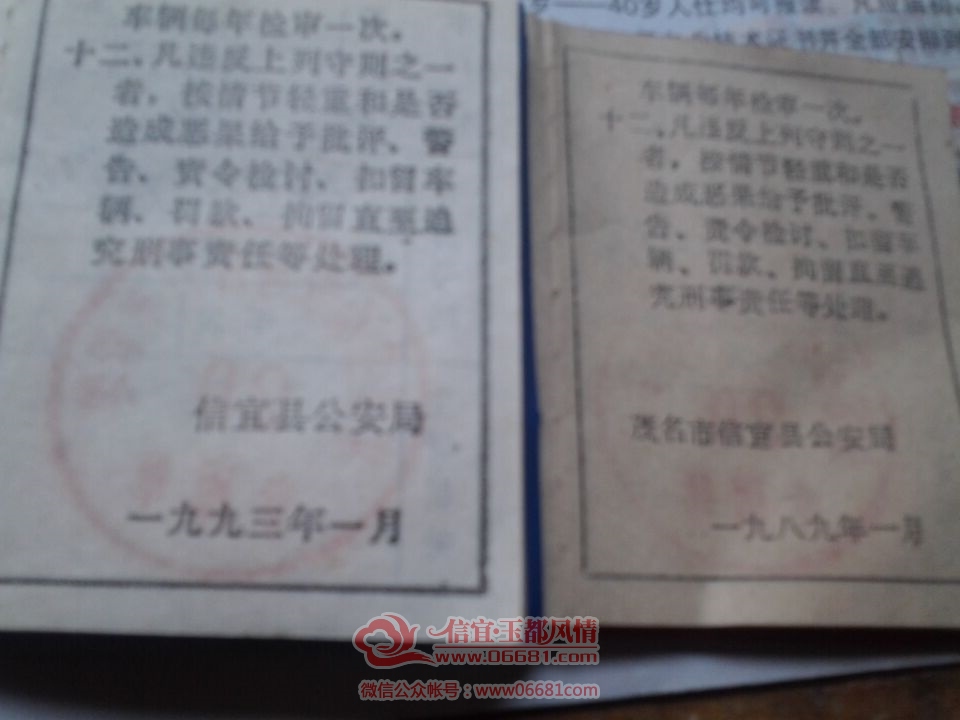 车辆每年检审一次。
十二、凡违反上列守则之一
者，按情节轻重和是否
造成恶果给予批评、警
告、责令检讨、扣留车
辆、罚款、拘留直至追
究刑事责任等处理。
信宜县公安局
一九九三年一月
车辆每年检审一次。
十二、凡违反上列守则之一
者，按情节轻重和是否
造成恶果给予批评、警
告、责令检讨、扣留车
辆、罚款、拘留直至追
究刑事责任等处理。
茂名市信宜县公安局
一九八九年一月
信宜·玉都风情
www.06681.com
微信公众帐号：www06681com